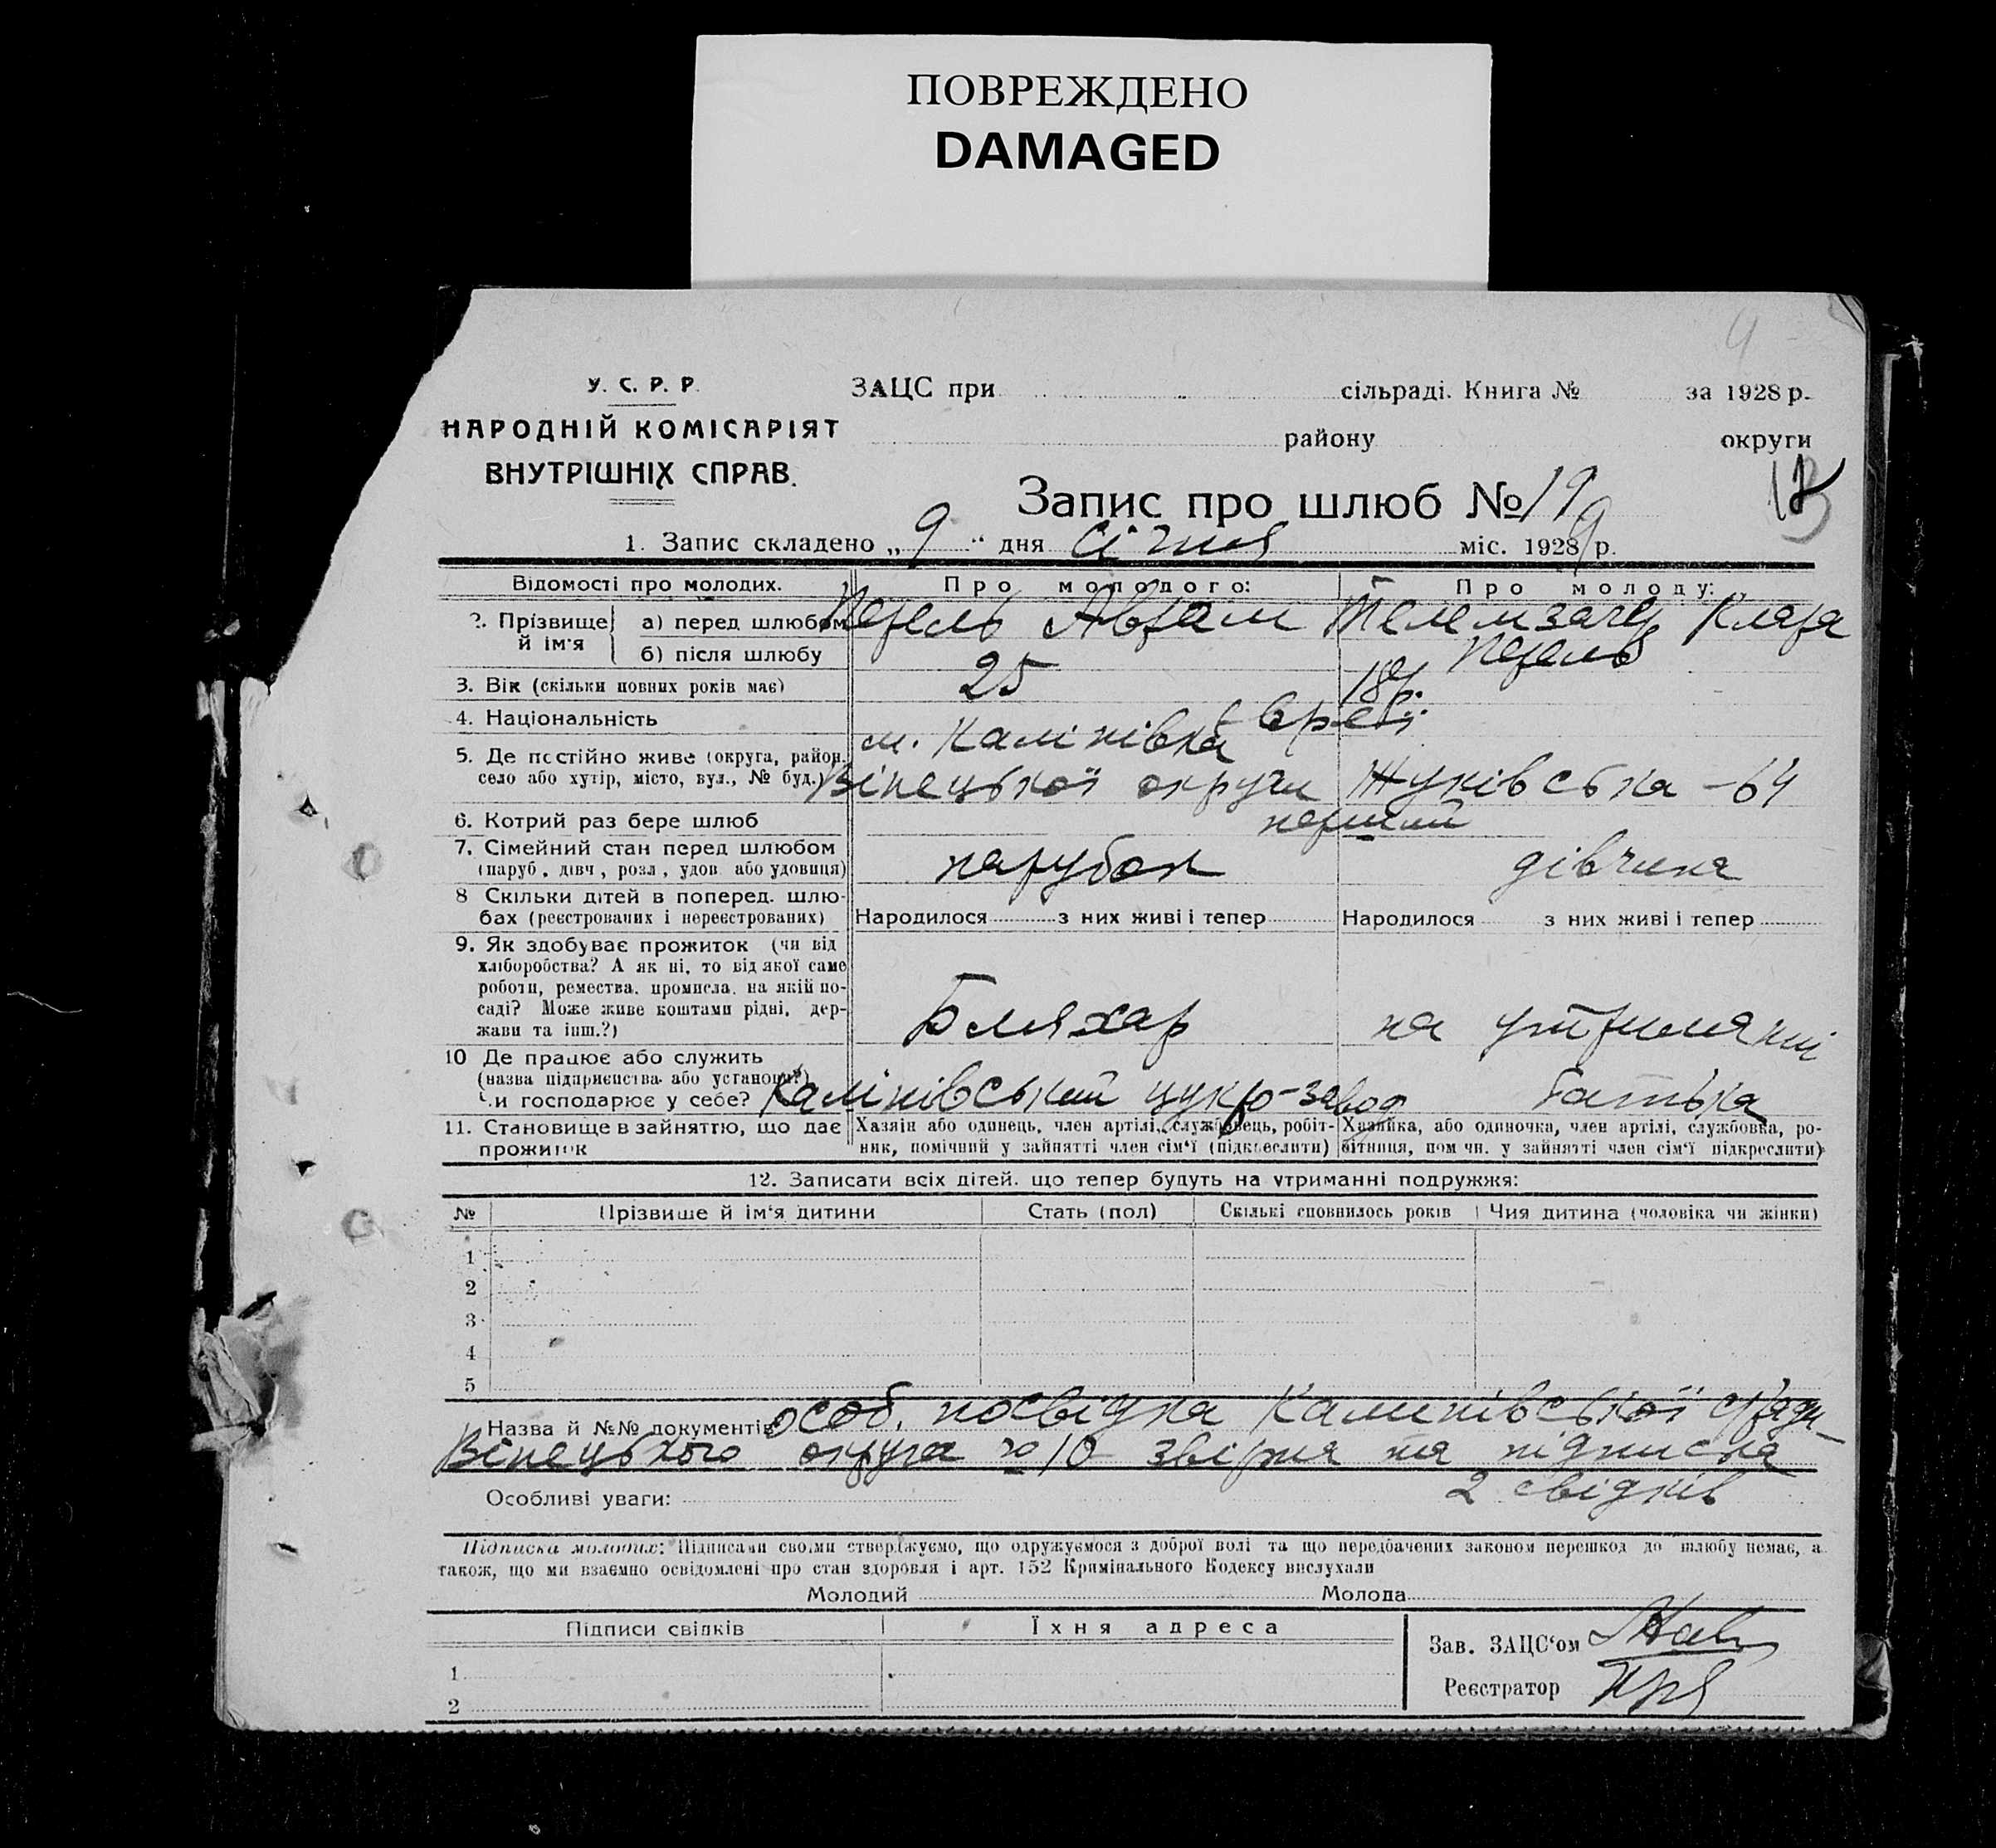 ПОВРЕЖДЕНО
DAMAGED
4
У. С. Р. Р.
НАРОДНІЙ КОМІСАРІЯТ
ВНУТРІШНІХ СПРАВ.
ЗАЦС при сільраді. Книга № за 1928 р.
району округи
Запис про шлюб № 19
1. Запис складено „9“ дня січня міс. 1928 9 р.
Відомості про молодих. Про молодого: Про молоду:
2. Прізвище й ім'я
а) перед шлюбом Перель Аврам Клара
б) після шлюбу Перель
3. Вік (скільки повних років має) 25 18 р.
4. Національність євреї
5. Де постійно живе (округа, район, село або хутір, місто, вул., № буд.)
м. Калінівка
Вінецької округи Жуківська - 64
6. Котрий раз бере шлюб перший
7. Сімейний стан перед шлюбом
(паруб., дівч., розл., удов. або удовиця) парубок дівчина
8 Скільки дітей в поперед. шлю-
бах (реєстрованих і нереєстрованих) Народилося з них живі і тепер Народилося з них живі і тепер
9. Як здобуває прожиток (чи від
хліборобства? А як ні, то від якої саме
роботи, ремества, промисла, на якій по-
саді? Може живе коштами рідні, дер-
жави та інш.?) Бляхар на утриманні
10 Де працює або служить
(назва підприємства або установи?)
Чи господарює у себе? Калінівський цукро-завод батька
11. Становище в зайняттю, що дає
прожиток
Хазяін або одинець, член артілі, службовець, робіт-
ник, помічний у зайнятті член сім'ї (підкреслити)
Хазяйка, або одиночка, член артілі, службовка, ро-
бітниця, помічн. у зайнятті член сім'ї підкреслити)
12. Записати всіх дітей, що тепер будуть на утриманні подружжя:
№ Прізвище й ім'я дитини Стать (пол) Скількі сповнилось років Чия дитина (чоловіка чи жінки)
1
2
3
4
5
Назва й №№ документів особ. посвідка Калинівської с/ради
Вінецького округа № 10 звірня та підписка
2 свідків
Особливі уваги:
Підписка молодих: Підписами своїми стверджуємо, що одружуємося з доброї волі та що передбачених законом перешкод до шлюбу немає, а
також, що ми взаємно освідомлені про стан здоровля і арт. 152 Кримінального Кодексу вислухали
Молодий Молода
Підписи свідків Їхня адреса
1
2
Зав. ЗАЦС'ом
Реєстратор